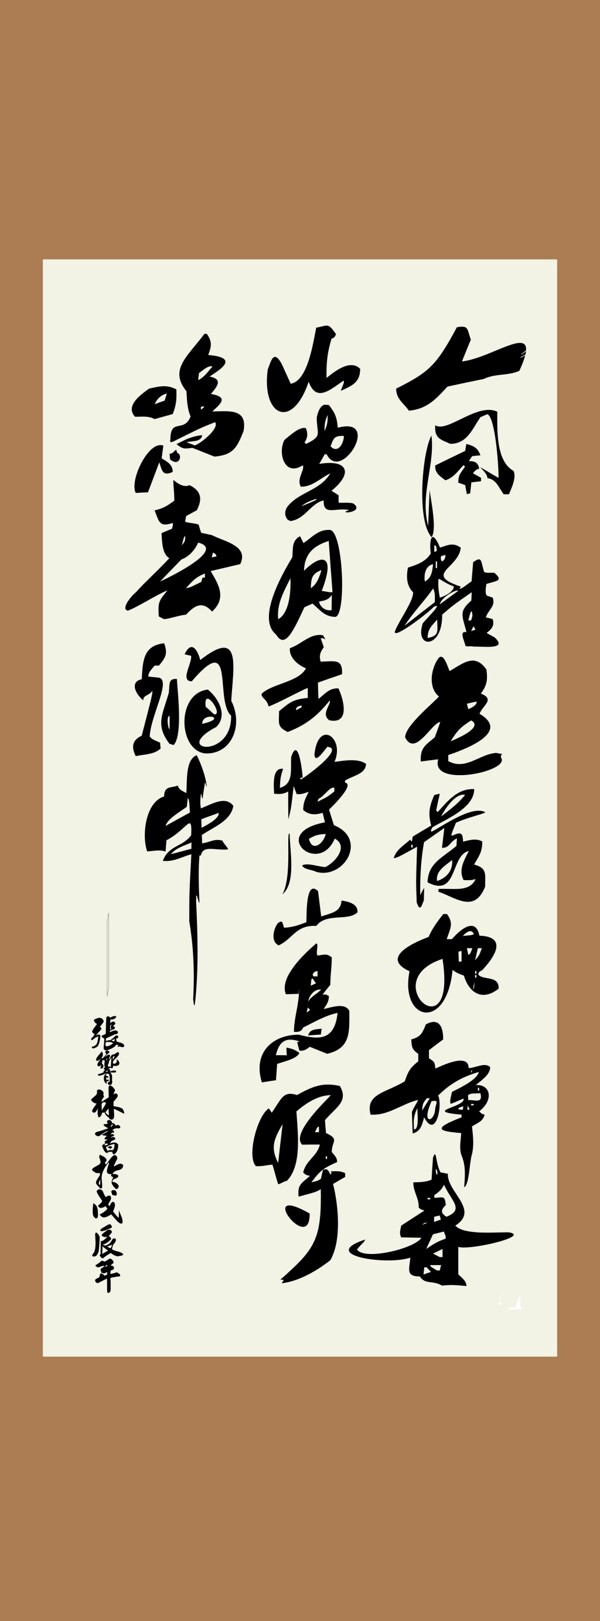 人閑桂花落夜靜春
山空月出驚山鳥時
鳴春澗中
張響林書於戊辰年